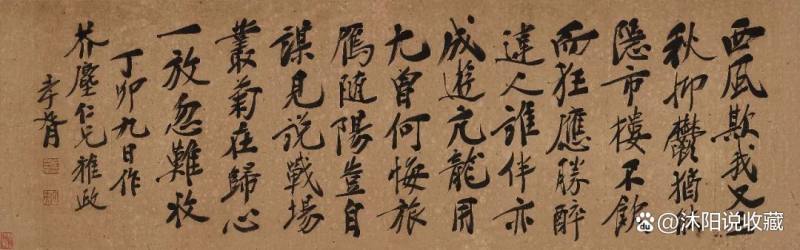 西風欺我又三
秋抑鬱猶能
隱市樓不飲
而狂應勝醉
達人誰伴亦
成遊亢龍用
九曾何悔旅
雁隨陽豈自
謀見説戰場
叢菊在歸心
一放忽難收
丁卯九日作
芥塵仁兄雅政
孝胥
@沐阳说收藏